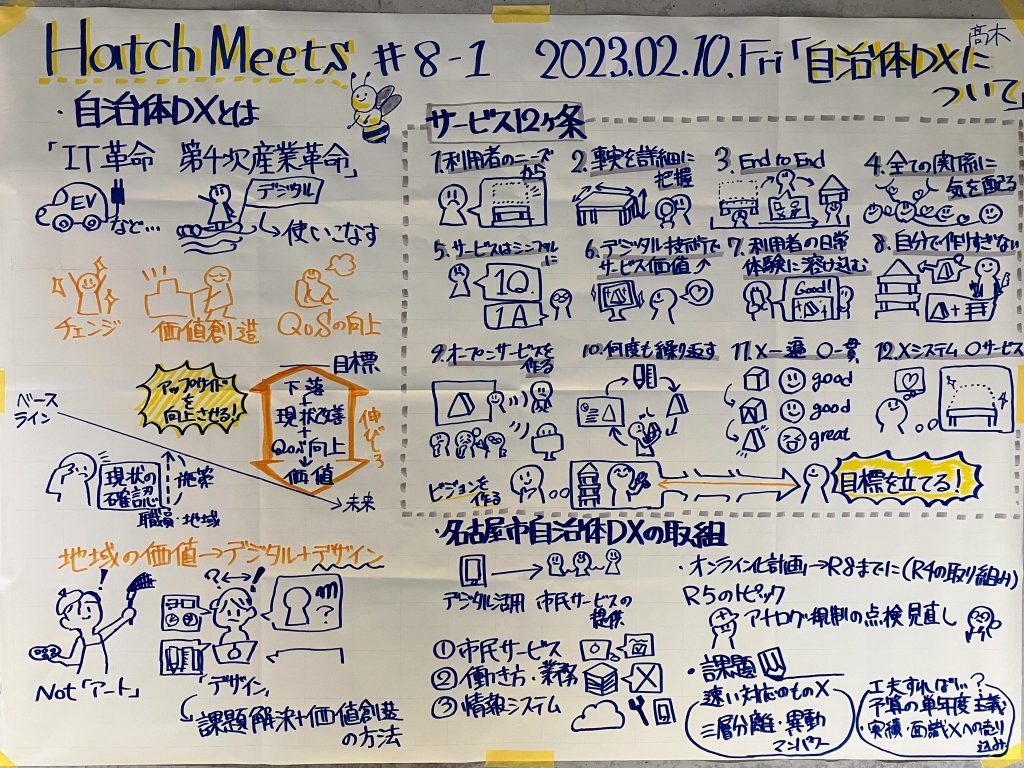 Hatch Meets #8-1 2023.02.10.Fri「自治体DXに
ついて」
高木
・自治体DXとは
「IT革命 第4次産業革命」
EV
など…
デジタル
使いこなす
チェンジ
価値創造
QoSの向上
ベース
ライン
アップサイド
を
向上させる!
目標
下落
+
現状改善
+
QoS向上
↓
価値
伸びしろ
未来
現状の
確認
施策
職員・地域
地域の価値→デジタル+デザイン
!
Not「アート」
?↔!
「デザイン」
課題解決+価値創造
の方法
サービス12ヶ条
1.利用者のニーズ
から
2.事実を詳細に
把握
3.End to End
4.全ての関係に
気を配る
5.サービスはシンプルに
1Q.
1A
6.デジタル技術で
サービス価値↑
7.利用者の日常
体験に溶け込む
Good!
8.自分で作りすぎない
9.オープンサービスを
作る
10.何度も繰り返す
11.X一遍 〇一貫
good
good
great
12.Xシステム 〇サービス
ビジョンを
作る
目標を立てる!
・名古屋市自治体DXの取組
デジタル活用 市民サービスの
提供
①市民サービス
②働き方・業務
③情報システム
・オンライン化計画→R8までに(R4の取り組み)
R5のトピック
アナログ規制の点検見直し
・課題
速い対応のものX
三層分離・異動
マンパワー
工夫すればいい?
予算の単年度主義
・実績・面識Xへの売り
込み